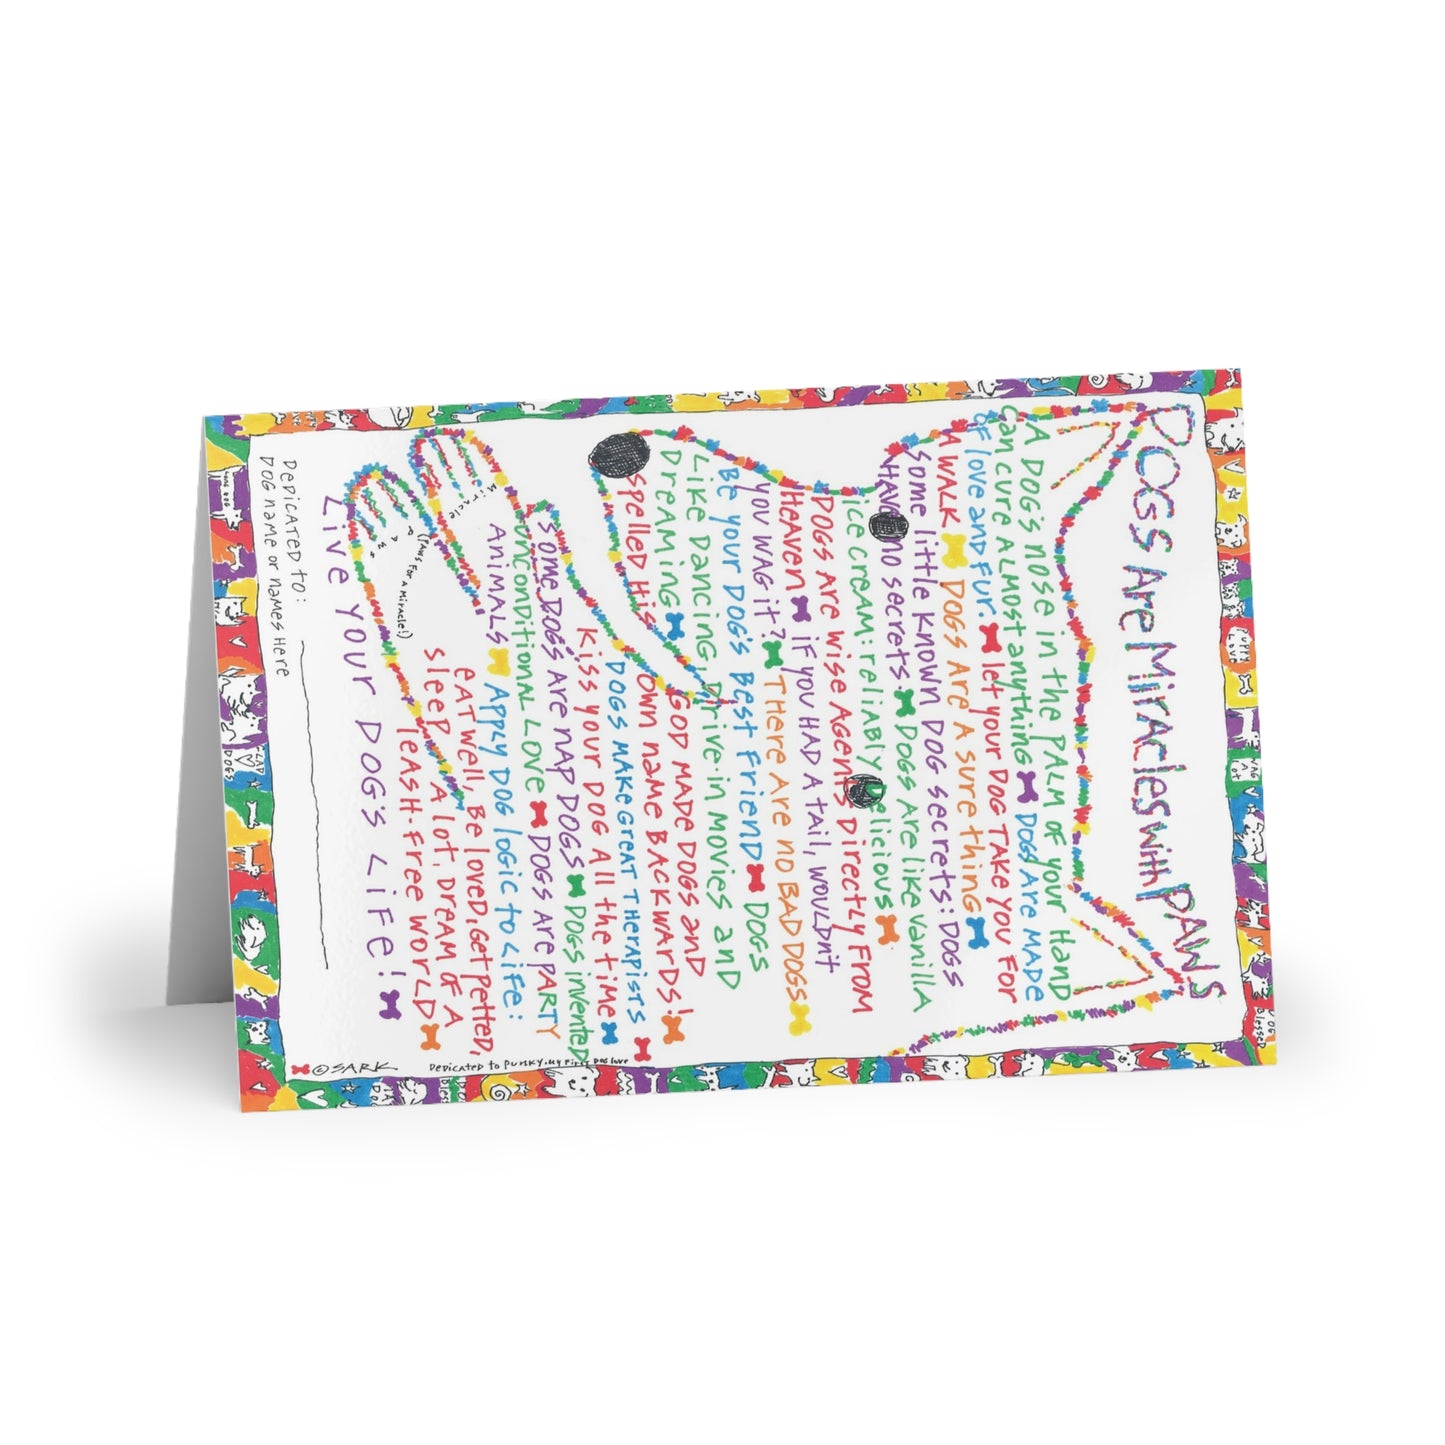 DOGS Are Miracles with PAWS
A DOG'S nose in the PALM of your Hand
can cure ALmost anything DOGS are MADE
of love and fur. let your DOG TAKE you For
A WALK DOGS Are A sure thing
some little known DOG secrets: DOGS
HAVE no secrets DOGS Are like vanilla
ice cream: reliably Delicious
DOGS Are wise Agents Directly From
Heaven if you HAD A tail, wouldn't
you WAG it? There Are no BAD DOGS
Be your DOG'S Best Friend DOGS
Like Dancing, Drive-in movies and
Dreaming GOD MADE DOGS and
spelled His own name BACKWARDS!
DOGS MAKE Great Therapists
Kiss your DOG All the time
some DOGS Are nap DOGS DOGS invented
unconditional love DOGS Are party
Animals Apply DOG logic to Life:
eat well, Be loved, Get petted,
sleep A lot, Dream of A
leash-free world
Miracle
Paws
(Paws for a Miracle!)
Live your DOG'S Life!
Dedicated to:
Dog name or names Here
©SARK
Dedicated to Punky, my First Dog love
Puppy Love
Wag At
Dogs Blessed
Lap Dogs